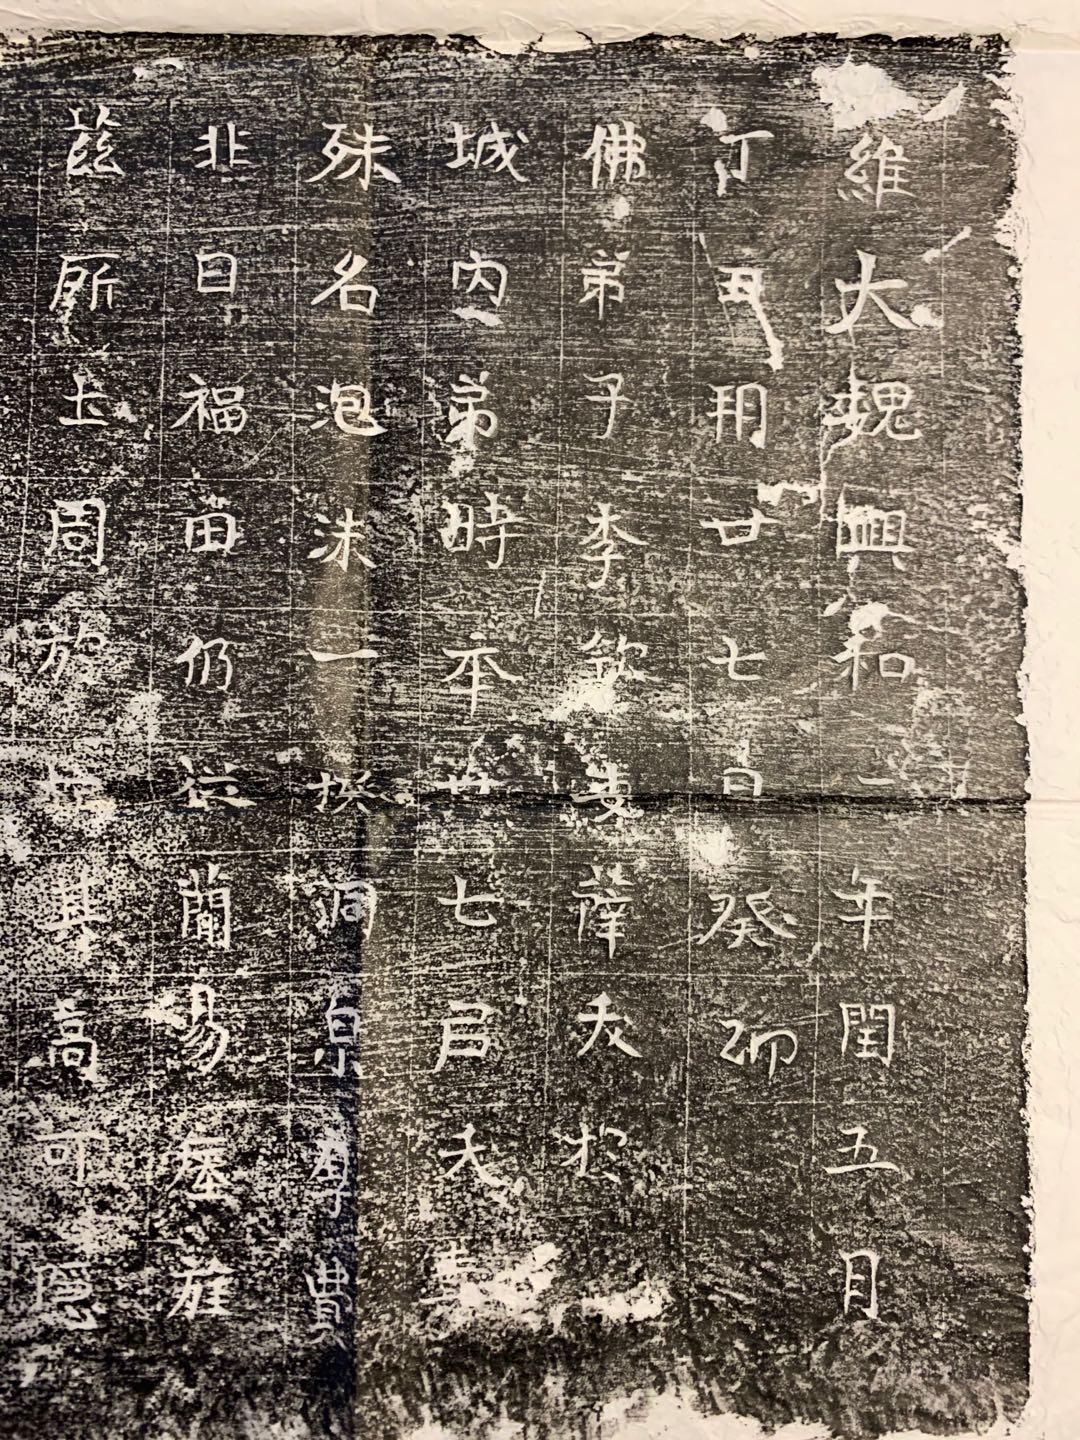 維大魏興和二年閏五月
丁丑朔廿七日癸卯
佛弟子李欽妻薛夭於
城內弟時年卅七启夭華
殊名泡沫一掞洞泉專貴
非日福田仍茲蘭湯痙旌
茲所上周於其高可隱